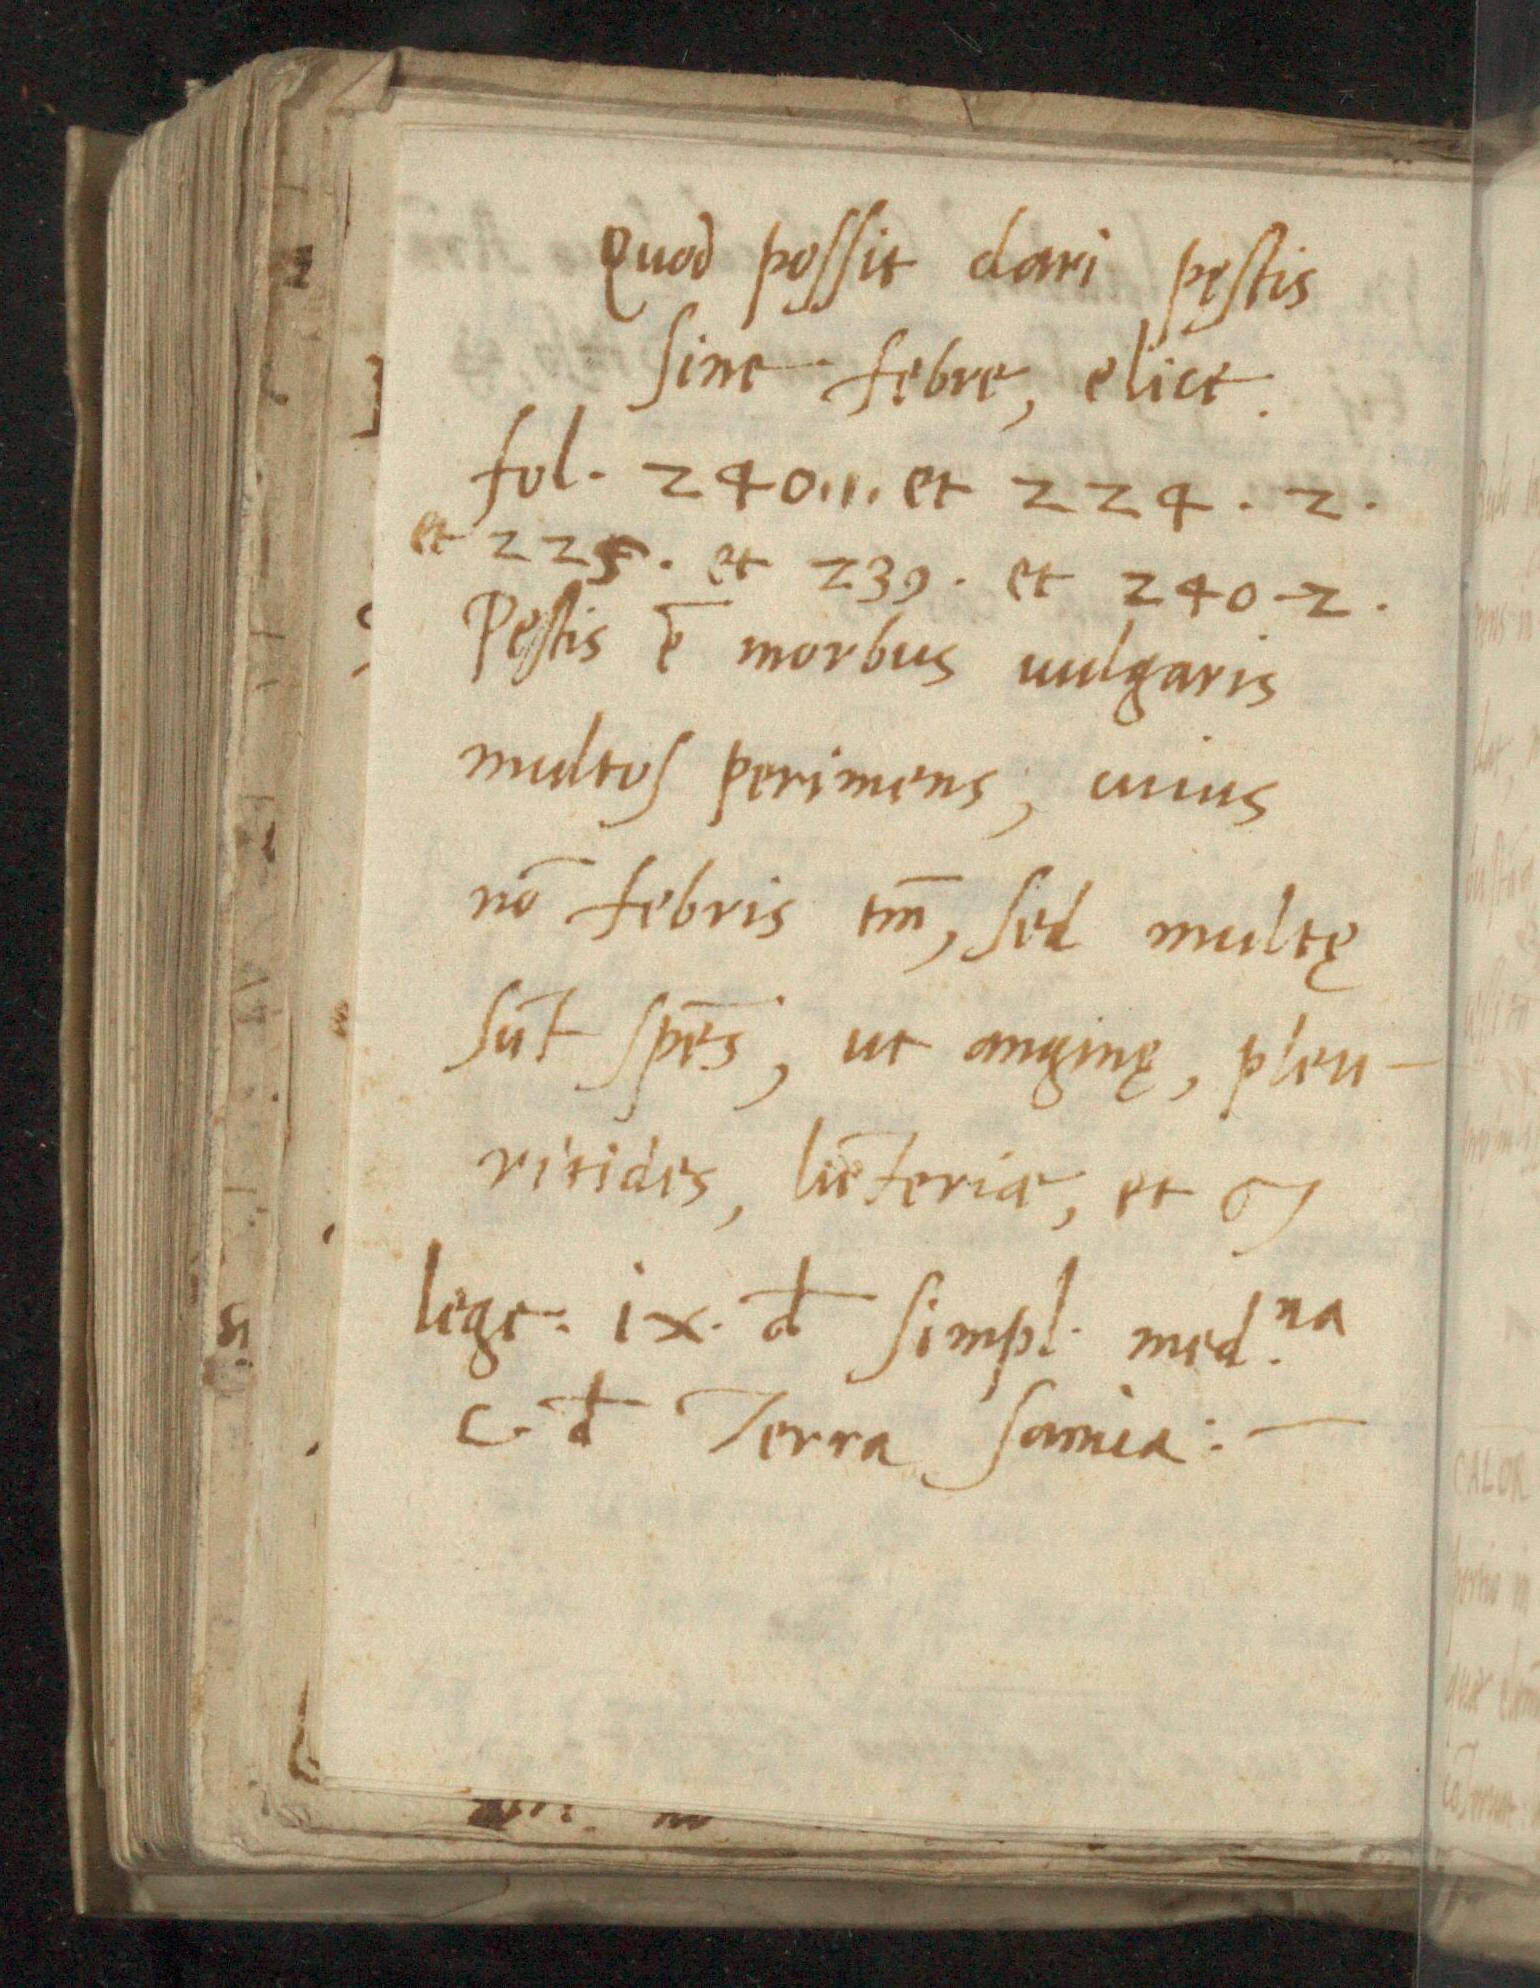 Quod possit dari pęstis
sine febre, elicę.
fol. 240.1. et 224. 2.
et 225. et 239. et 240-2.
Pęstis ē morbus uulgaris
multos perimens, cuius
nō febris tm̄, sed multę
sūt spēs, ut anginę, pleu-
ritides, liēteriæ, et
lege. ix. đ simpl. med.na
c. đ Terra samia: —